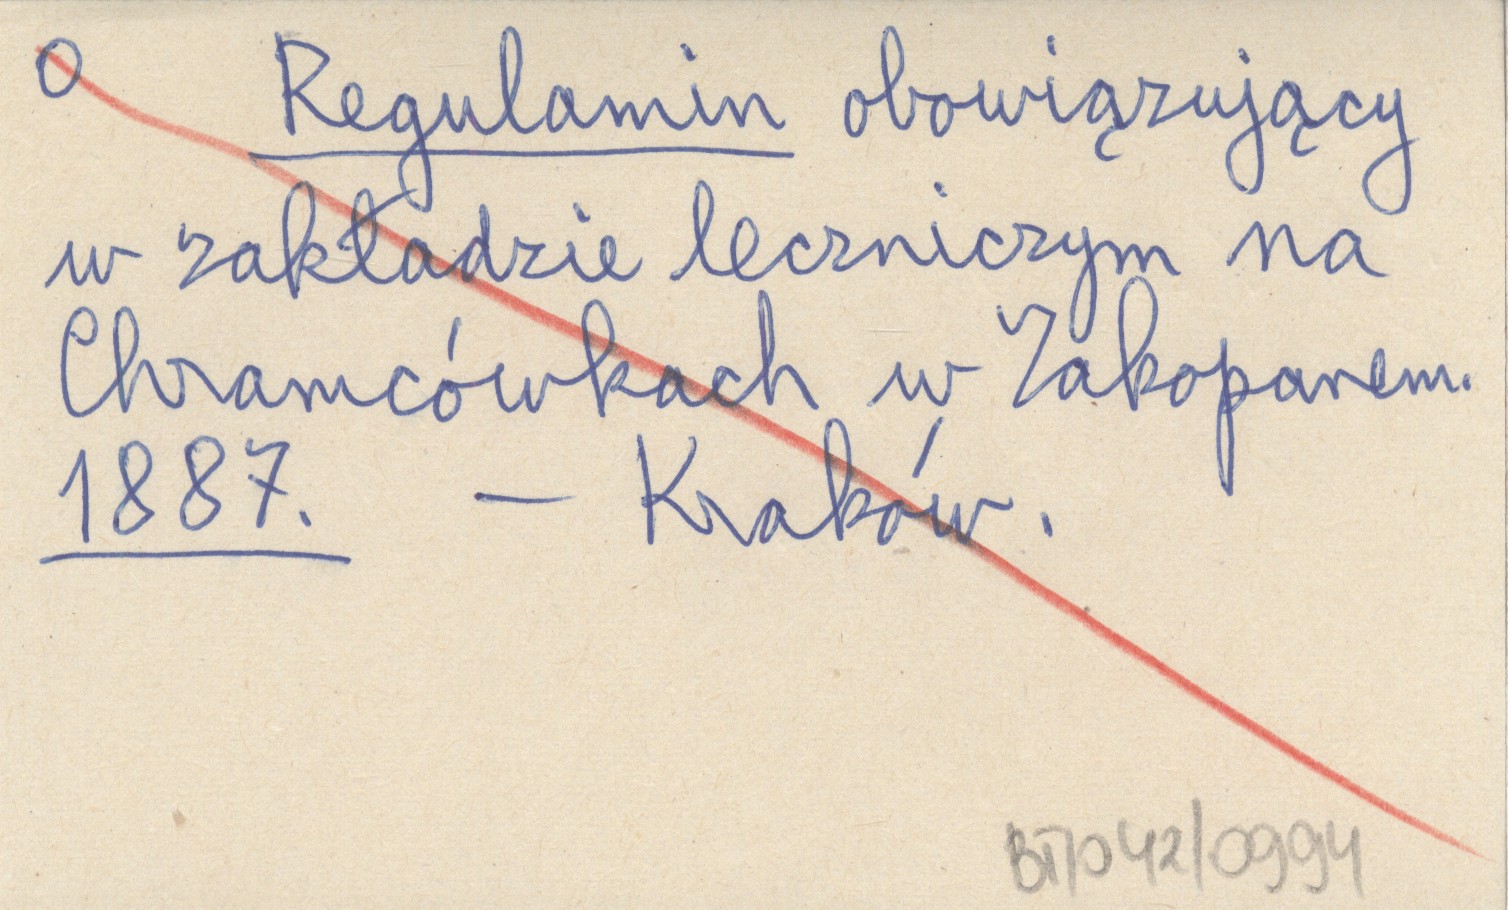 O Regulamin obowiązujący
w zakładzie leczniczym na
Chramcówkach w Zakopanem.
1887. — Kraków.
BT/042/0994